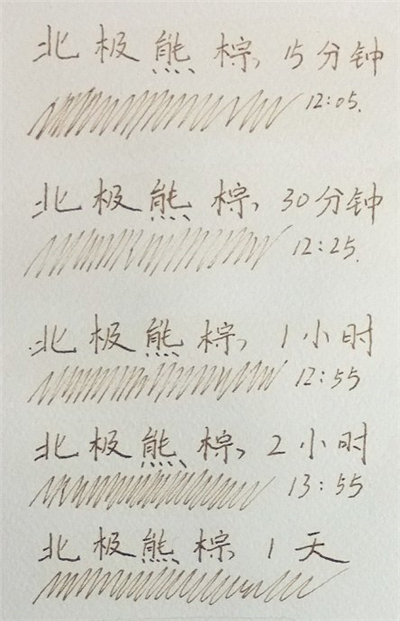 北极熊棕, 15分钟
12:05.
北极熊棕, 30分钟
12:25.
北极熊棕, 1小时
12:55
北极熊棕, 2小时
13:55
北极熊棕 1天